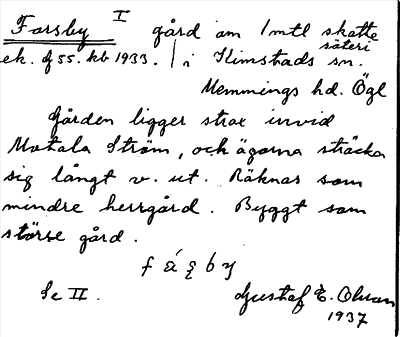 Forsby I gård om 1 mtl skatte
säteri
ek. f 55. kb 1933. | i Kimstads sn.
Memmings hd. Ögl
Gården ligger strax invid
Motala Ström, och ägorna sträcka
sig långt v. ut. Räknas som
mindre herrgård. Byggt som
större gård.
Se II. Gustaf E. Olsson
1937